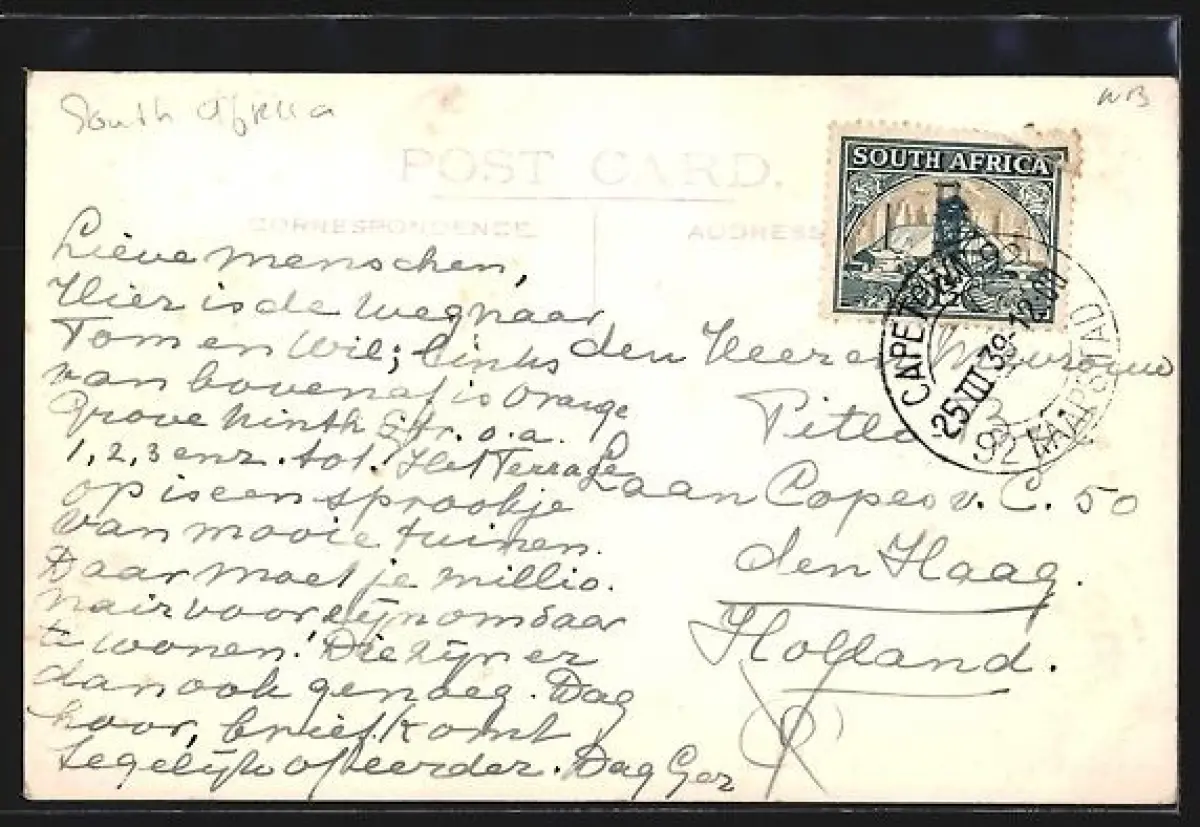 South Africa
WB
POST CARD.
CORRESPONDENCE
ADDRESS
SOUTH AFRICA
CAPE TOWN
25 III 39-12 00
92 KAAPSTAD
Lieve menschen,
Hier is de weg naar
Tom en Wil; links
van bovenaf is Orange
Grove Ninth Str. o.a.
1, 2, 3 enz. tot. Het Terras
op is een sprookje
van mooie tuinen.
Daar moet je millio.
nair voor zijn om daar
te wonen! Die zijn er
dan ook genoeg. Dag
hoor, brief komt
tegelijk of eerder. Dag Ger
den Heer en Mevrouw
Laan Copes v. C. 50
den Haag.
Holland.